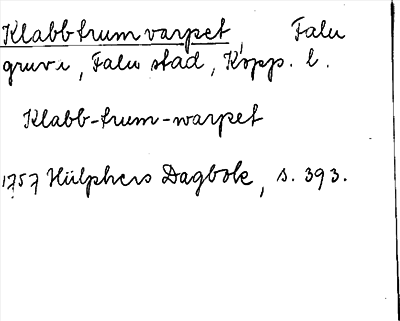 Klabbtrumvarpet, Falu
gruvi, Falu stad, Kopp. l.
Klabb-trum-warpet
1757 Hülphers Dagbok, s. 393.